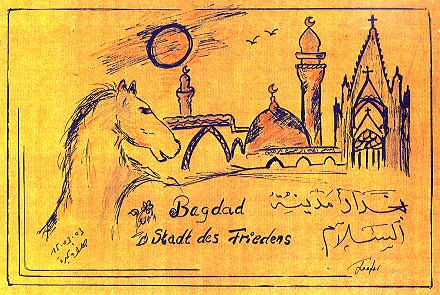 Bagdad
Stadt des Friedens
بغداد مدينة
السلام
15.03.03